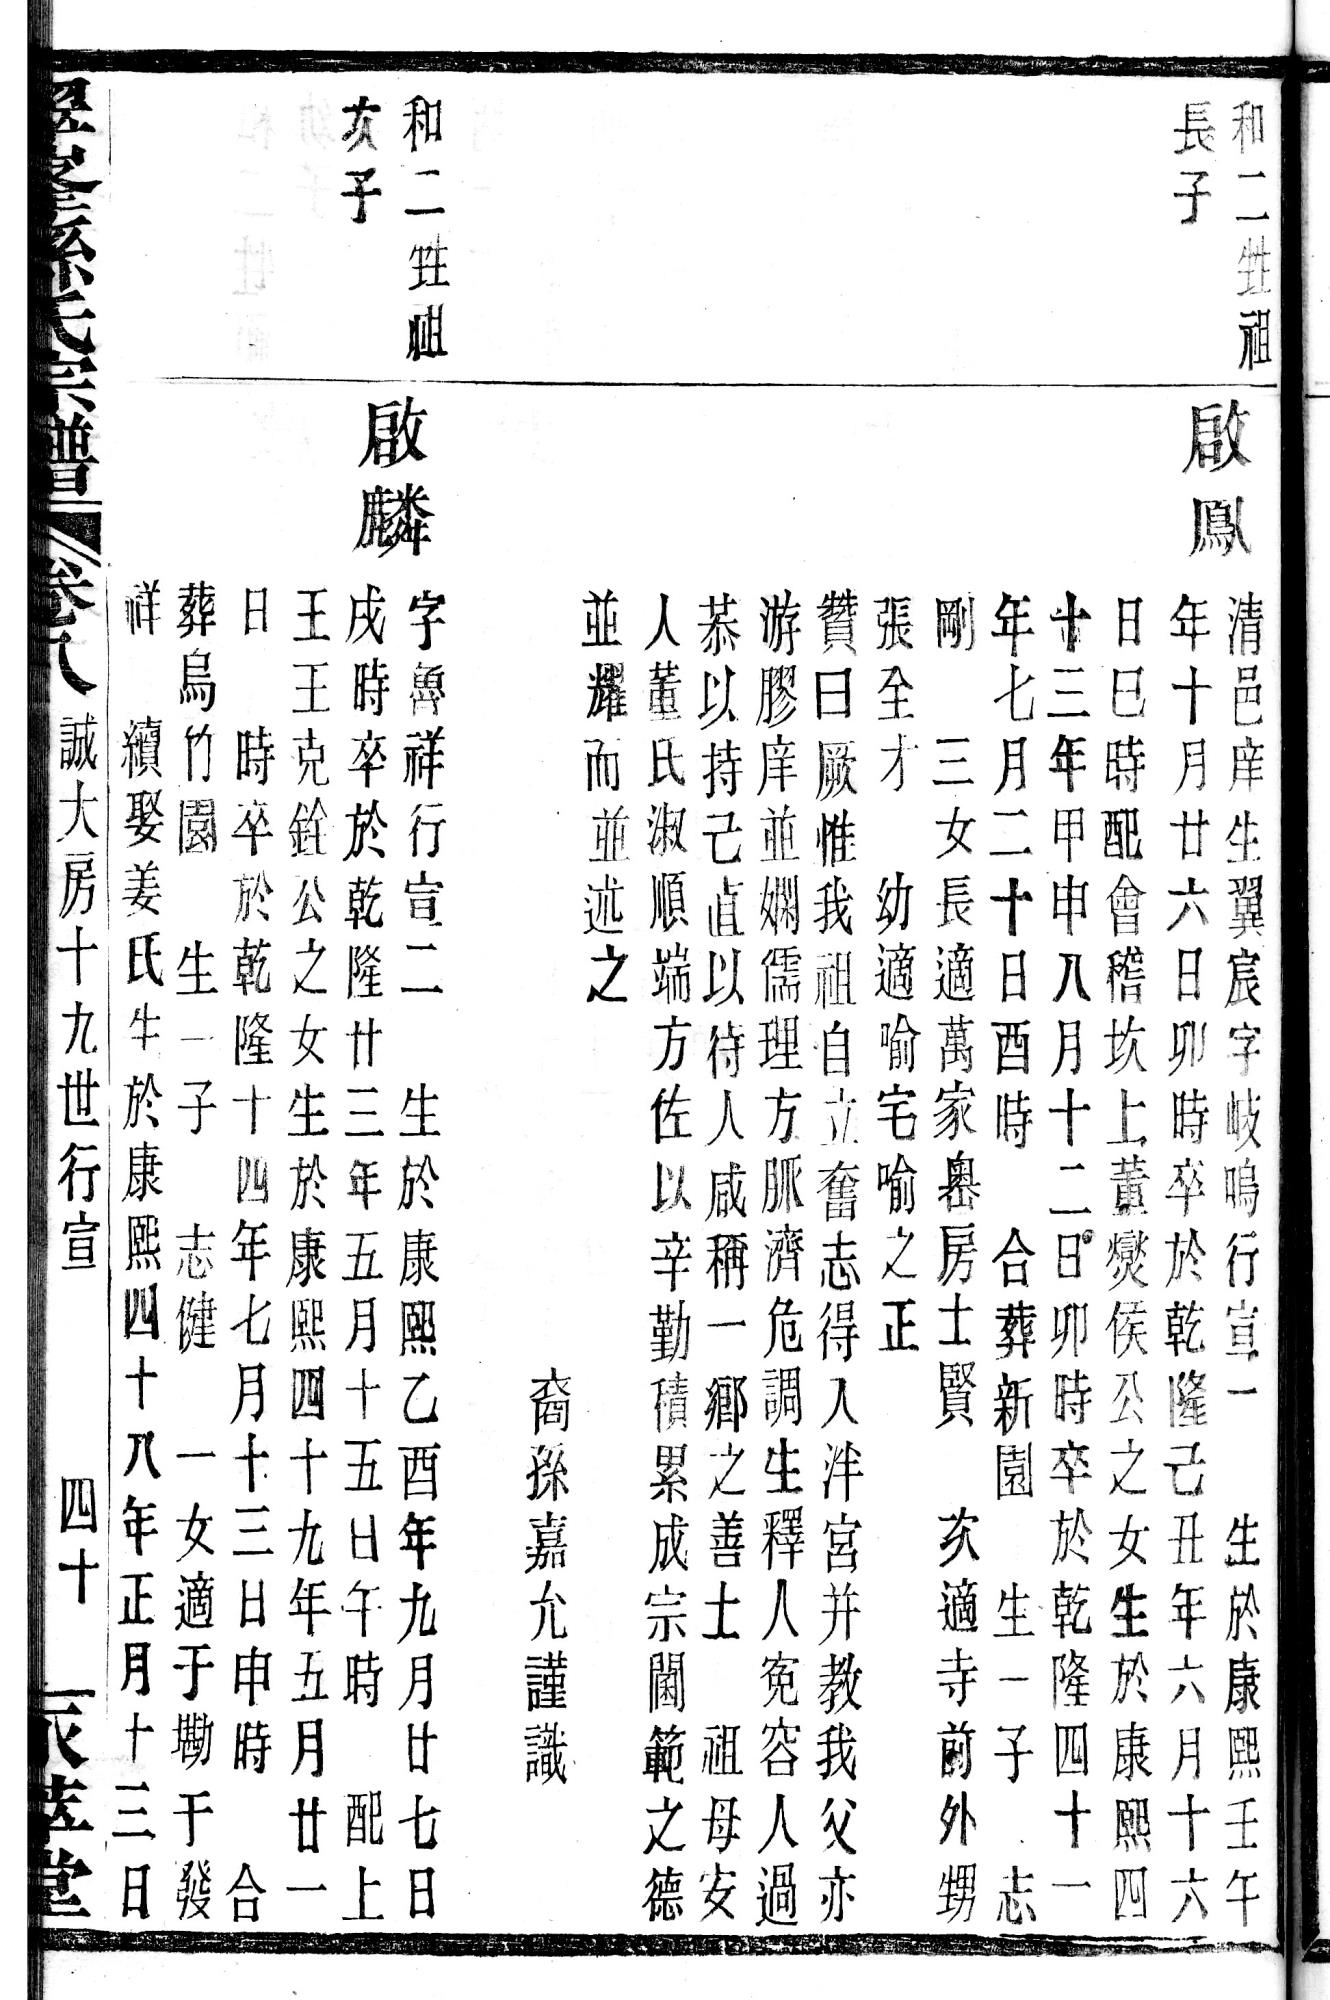 和二甡祖
長子
啟鳳
清邑庠生翼宸字岐鳴行宣一　生於康熙壬午
年十月廿六日卯時卒於乾隆己丑年六月十六
日巳時配會稽坎上董爕侯公之女生於康熙四
十三年甲申八月十二日卯時卒於乾隆四十一
年七月二十日酉時　合葬新園　生一子　志
剛　三女長適萬家嶴房士賢　次適寺前外甥
張全才　幼適喻宅喻之正
贊曰厥惟我祖自立奮志得入泮宮并教我父亦
游膠庠並嫻儒理方脈濟危調生釋人寃容人過
恭以持己直以待人咸稱一鄉之善士　祖母安
人董氏淑順端方佐以辛勤積累成宗閫範之德
並耀而並述之
裔孫嘉允謹識
和二甡祖
次子
啟麟
字魯祥行宣二　生於康熙乙酉年九月廿七日
戌時卒於乾隆廿三年五月十五日午時　配上
王王克銓公之女生於康熙四十九年五月廿一
日　時卒於乾隆十四年七月十三日申時　合
葬烏竹園　生一子　志健　一女適于墈于發
祥　續娶姜氏生於康熙四十八年正月十三日
孫氏宗譜　卷八　誠大房十九世行宣　四十　萃堂